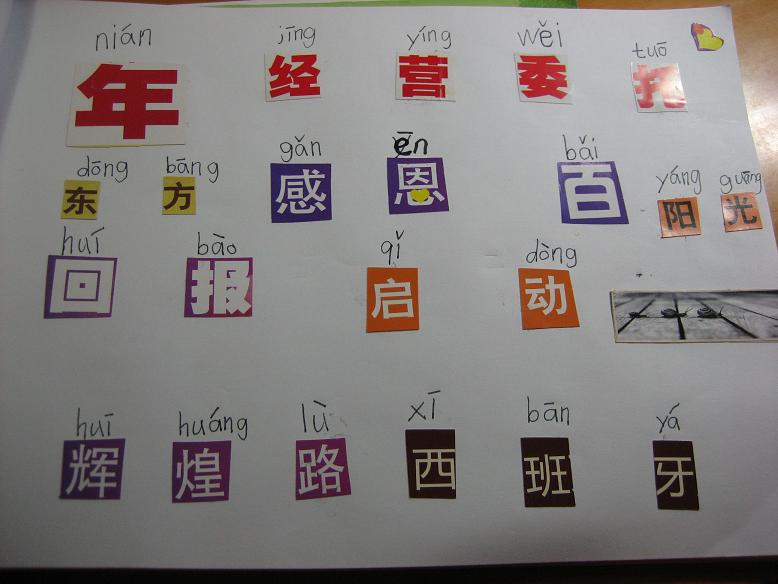 nián jīng yíng wěi tuō
年 经 营 委 托
dōng bāng gǎn ēn bǎi yáng guāng
东 方 感 恩 百 阳 光
huí bào qǐ dòng
回 报 启 动
huī huáng lù xī bān yá
辉 煌 路 西 班 牙